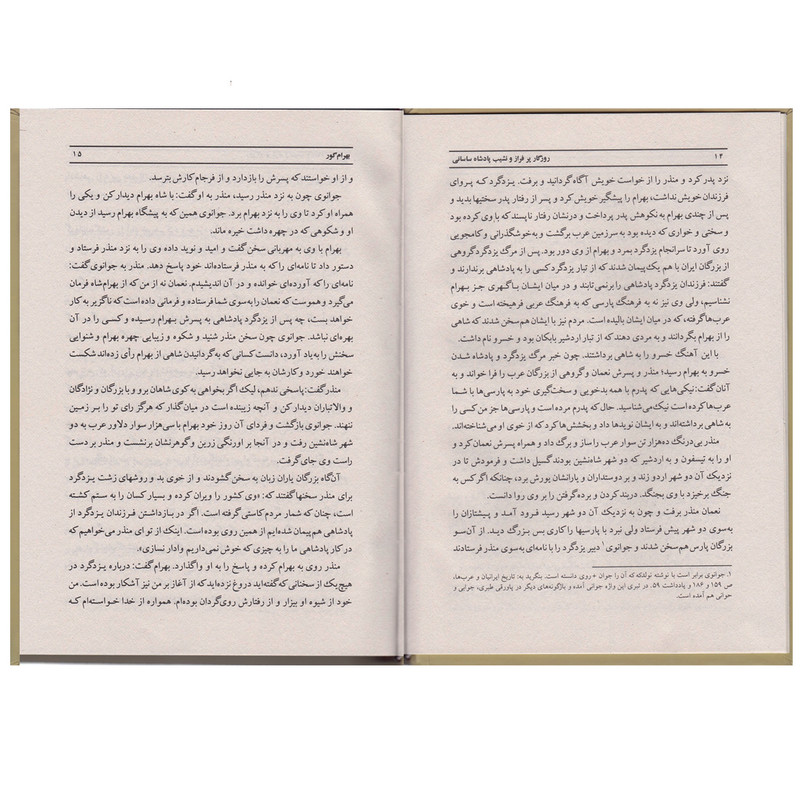 ۱۴ روزگار پر فراز و نشیب پادشاه ساسانی
نزد پدر کرد و منذر را از خواست خویش آگاه گردانید و برفت. یزدگرد که پروای
فرزندان خویش نداشت، بهرام را پیشگیر خویش کرد و پسر از رفتار پدر سختیها بدید و
پس از چندی بهرام به نکوهش پدر پرداخت و درنشان رفتار ناپسند که با وی کرده بود
و سختی و خواری که دیده بود به سرزمین عرب برگشت و به‌خوشگذرانی و کامجویی
روی آورد تا سرانجام یزدگرد بمرد و بهرام از وی دور بود. پس از مرگ یزدگرد گروهی
از بزرگان ایران با هم یک پیمان شدند که از تبار یزدگرد کسی را به پادشاهی برندارند و
گفتند: فرزندان یزدگرد پادشاهی را برنمی‌تابند و در میان ایشان باگهری جز بهرام
نشناسیم، ولی وی نیز نه به فرهنگ پارسی که به فرهنگ عربی فرهیخته است و خوی
عرب‌ها گرفته، که در میان ایشان بالیده است. مردم نیز با ایشان هم‌سخن شدند که شاهی
را از بهرام بگردانند و به مردی دهند که از تبار اردشیر بابکان بود و خسرو نام داشت.
با این آهنگ خسرو را به شاهی برداشتند. چون خبر مرگ یزدگرد و پادشاه شدن
خسرو به بهرام رسید؛ منذر و پسرش نعمان و گروهی از بزرگان عرب را فرا خواند و به
آنان گفت: نیکی‌هایی که پدرم با همه بدخویی و سخت‌گیری خود به پارسی‌ها با شما
عرب‌ها کرده است نیک می‌شناسید. حال که پدرم مرده است و پارسی‌ها جز من کسی را
به شاهی برداشته‌اند و به ایشان نویدها داد و بخشش‌ها کرد که از خوی او می‌شناخته‌اند.
منذر بی‌درنگ ده‌هزار تن سوار عرب را ساز و برگ داد و همراه پسرش نعمان کرد و
او را به تیسفون و به اردشیر که دو شهر شاه‌نشین بودند گسیل داشت و فرمودش تا در
نزدیک آن دو شهر اردو زند و بر دوستداران و یارانشان یورش برد، چنانکه اگر کس به
جنگ برخیزد با وی بجنگد. دربند کردن و برده‌گرفتن را بر وی روا دانست.
نعمان منذر برفت و چون به نزدیک آن دو شهر رسید فرود آمد و پیشتازان را
به‌سوی دو شهر پیش فرستاد ولی نبرد با پارسیها را کاری بس بزرگ دید. از آن‌سو
بزرگان پارس هم‌سخن شدند و جوانوی۱ دبیر یزدگرد را با نامه‌ای به‌سوی منذر فرستادند
۱. جوانوی برابر است با نوشته نولدکه که آن را جوان + روی دانسته است. بنگرید به: تاریخ ایرانیان و عرب‌ها،
ص ۱۵۹ و ۱۸۶ و یادداشت ۵۹. در تبری این واژه جوانی آمده و باژگونه‌های دیگر در پاورقی طبری، جوابی و
حوانی هم آمده است.
بهرام گور ۱۵
و از او خواستند که پسرش را بازدارد و از فرجام کارش بترسد.
جوانوی چون به نزد منذر رسید، منذر به او گفت: با شاه بهرام دیدار کن و یکی را
همراه او کرد تا وی را به نزد بهرام برد. جوانوی همین که به پیشگاه بهرام رسید از دیدن
او و شکوهی که در چهره داشت خیره ماند.
بهرام با وی به مهربانی سخن گفت و امید و نوید داده وی را به نزد منذر فرستاد و
دستور داد تا نامه‌ای را که به منذر فرستاده‌اند خود پاسخ دهد. منذر به جوانوی گفت:
نامه‌ای را که آورده‌ای خوانده و در آن اندیشیدم. نعمان نه از من که از بهرام‌شاه فرمان
می‌گیرد و هموست که نعمان را به‌سوی شما فرستاده و فرمانی داده است که ناگزیر به کار
خواهد بست، چه پس از یزدگرد پادشاهی به پسرش بهرام رسیده و کسی را در آن
بهره‌ای نباشد. جوانوی چون سخن منذر شنید و شکوه و زیبایی چهره بهرام و شنوایی
سخنش را به یاد آورد، دانست کسانی که به گردانیدن شاهی از بهرام رأی زده‌اند شکست
خواهند خورد و کارشان به جایی نخواهد رسید.
منذر گفت: پاسخی ندهم، لیک اگر بخواهی به کوی شاهان برو و با بزرگان و نژادگان
و والاتباران دیدار کن و آنچه زیبنده است در میان گذار که هرگز رای تو را بر زمین
ننهند. جوانوی بازگشت و فردای آن روز خود بهرام با سی‌هزار سوار دلاور عرب به دو
شهر شاه‌نشین رفت و در آنجا بر اورنگی زرین و گوهرنشان برنشست و منذر بر دست
راست وی جای گرفت.
آن‌گاه بزرگان یاران زبان به سخن گشودند و از خوی بد و روشهای زشت یزدگرد
برای منذر سخنها گفتند که: «وی کشور را ویران کرده و بسیار کسان را به ستم کشته
است، چنان که شمار مردم کاستی گرفته است. اگر در بازداشتن فرزندان یزدگرد از
پادشاهی هم‌پیمان شده‌ایم از همین روی بوده است. اینک از تو ای منذر می‌خواهیم که
در کار پادشاهی ما را به چیزی که خوش نمی‌داریم وادار نسازی».
منذر روی به بهرام کرده و پاسخ را به او واگذارد. بهرام گفت: درباره یزدگرد در
هیچ‌یک از سخنانی که گفته‌اید دروغ نزده‌اید که از آغاز بر من نیز آشکار بوده است. من
خود از شیوه او بیزار و از رفتارش روی‌گردان بوده‌ام. همواره از خدا خواسته‌ام که